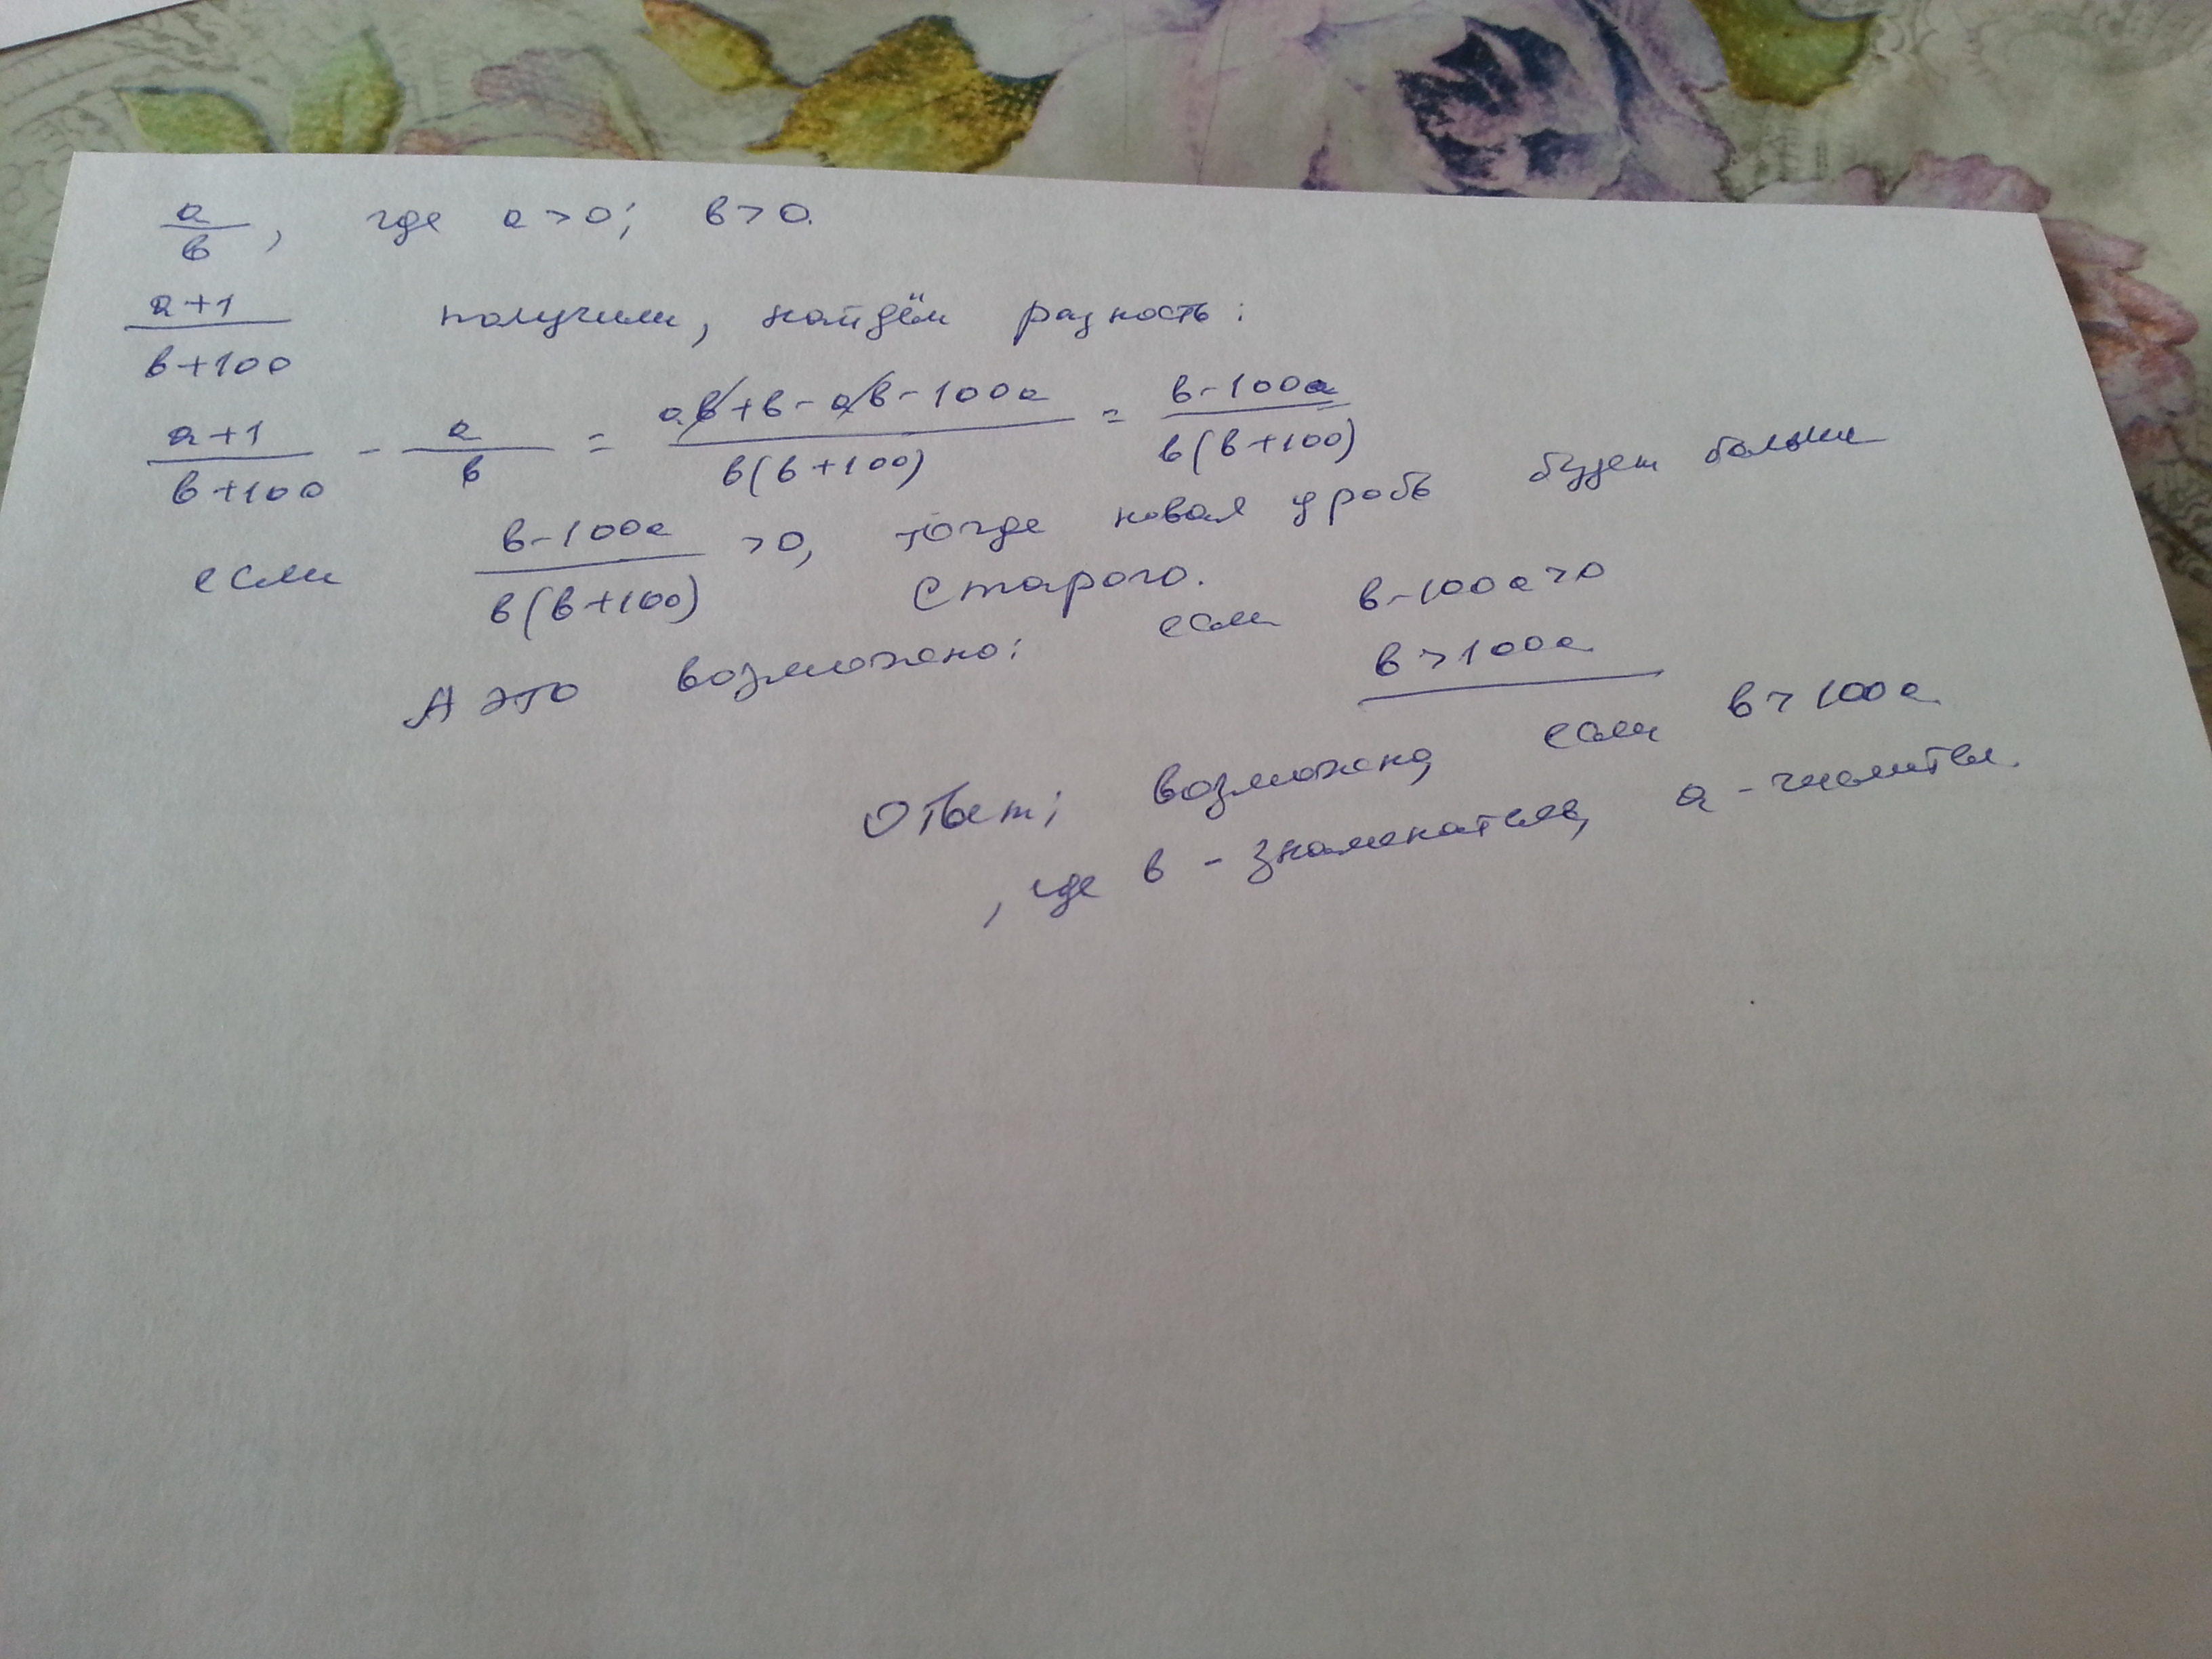 a/в, где a>0; в>0.
a+1/в+100 получили, найдём разность:
a+1/в+100 - a/в = aв+в-aв-100a/в(в+100) = в-100a/в(в+100)
если в-100a/в(в+100) >0, тогда новая дробь будет больше
старого.
А это возможно: если в-100a>0
в>100a
Ответ: возможно, если в>100a
, где в - знаменатель, a - числитель.